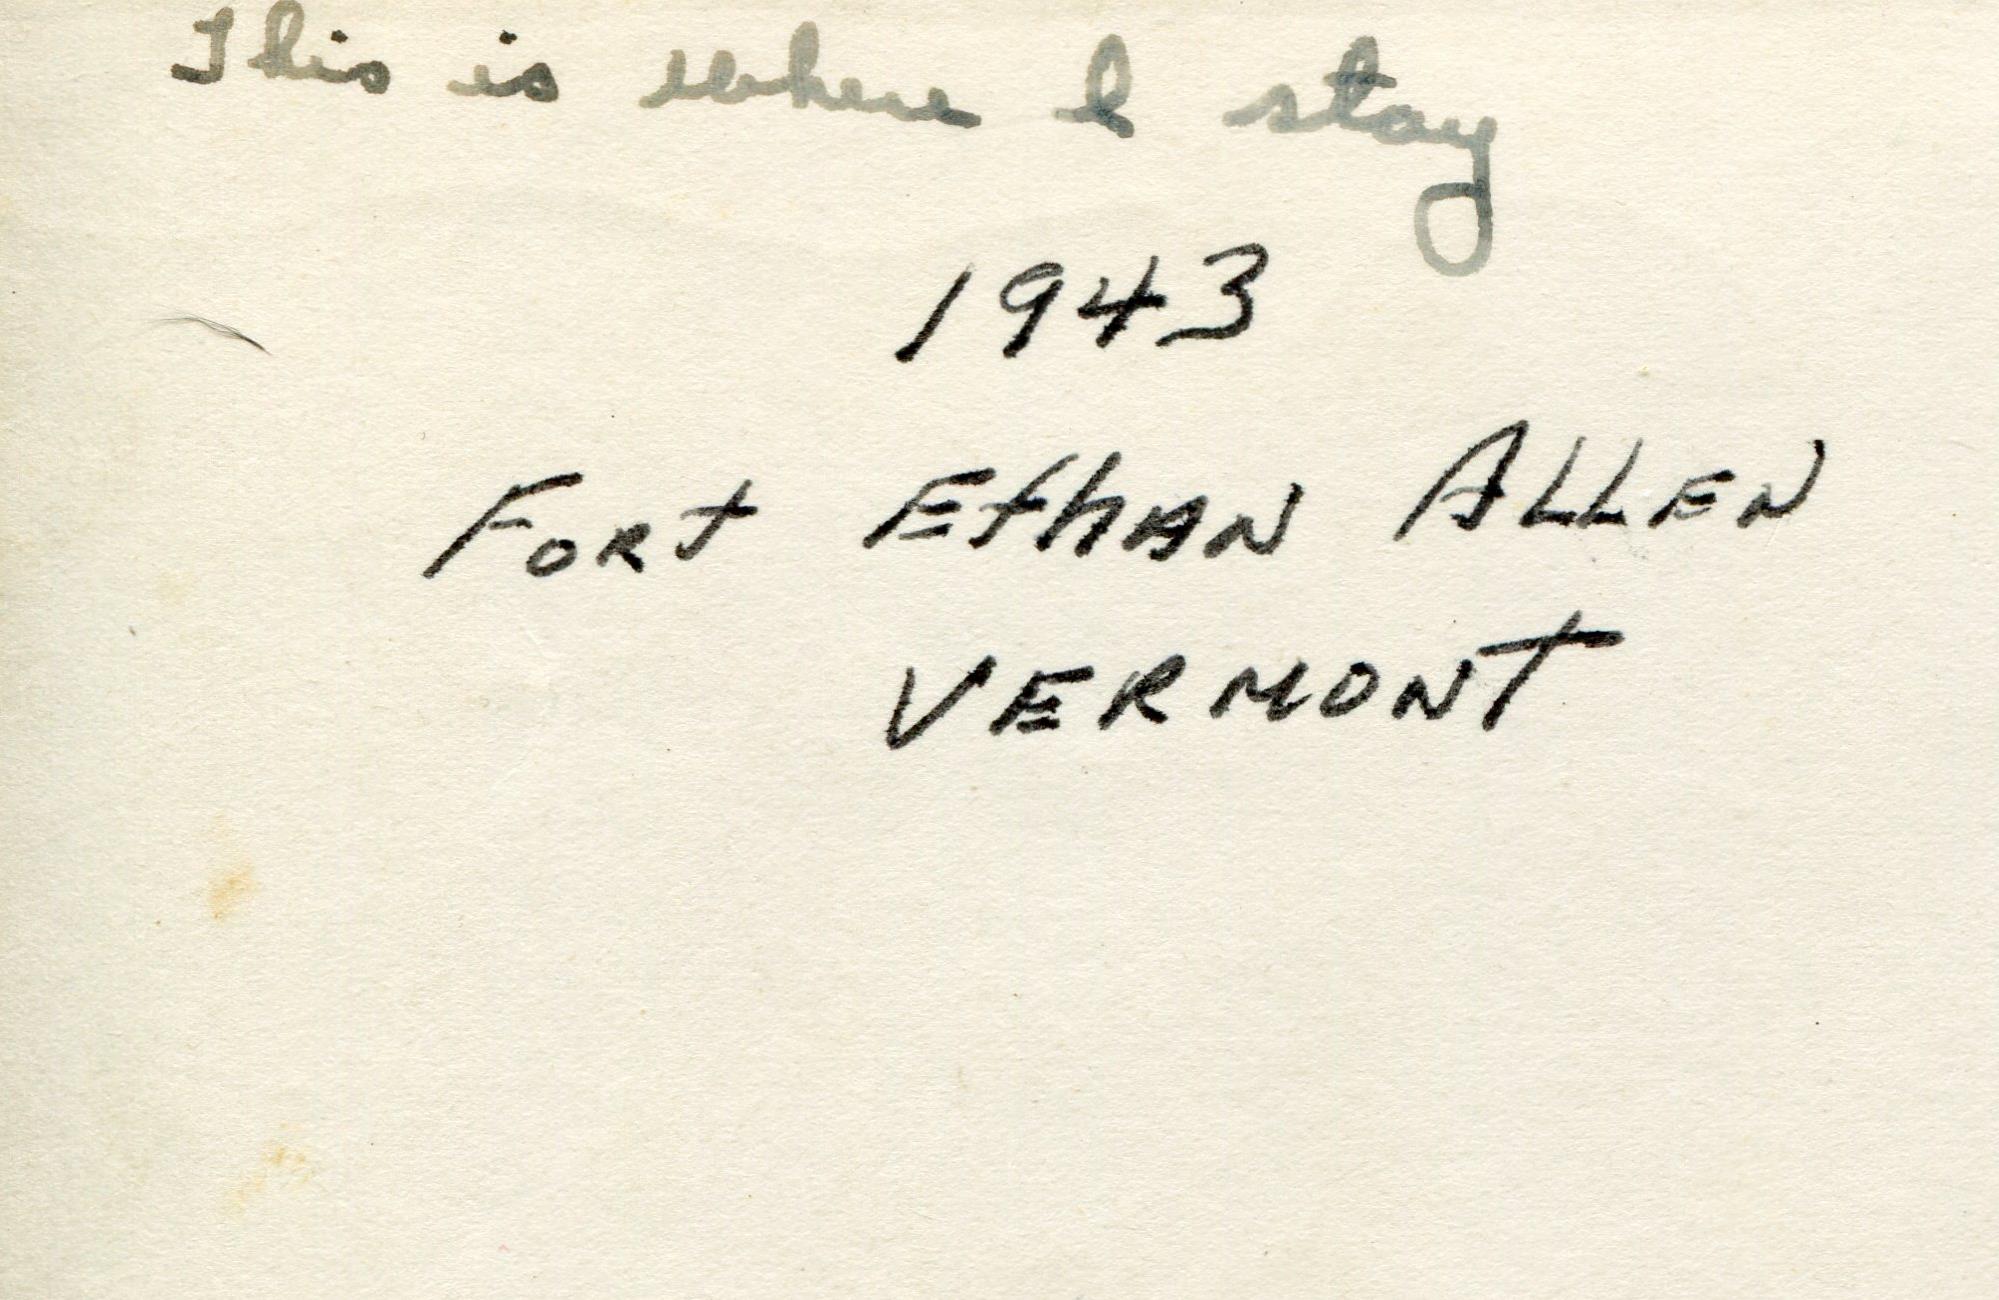 This is where I stay
1943
FORT EthAN ALLEN
VERMONT